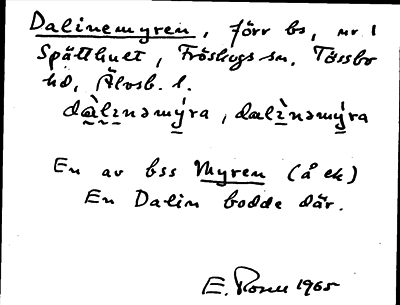 Dalinemyren, förr bs, nr 1
Spätthuet, Fröskogs sn, Tössbo
hd, Älvsb. l.
dàlinəmýra, dalìnəmýra
En av bss Myren (å ek)
En Dalin bodde där.
E. Rosell 1965